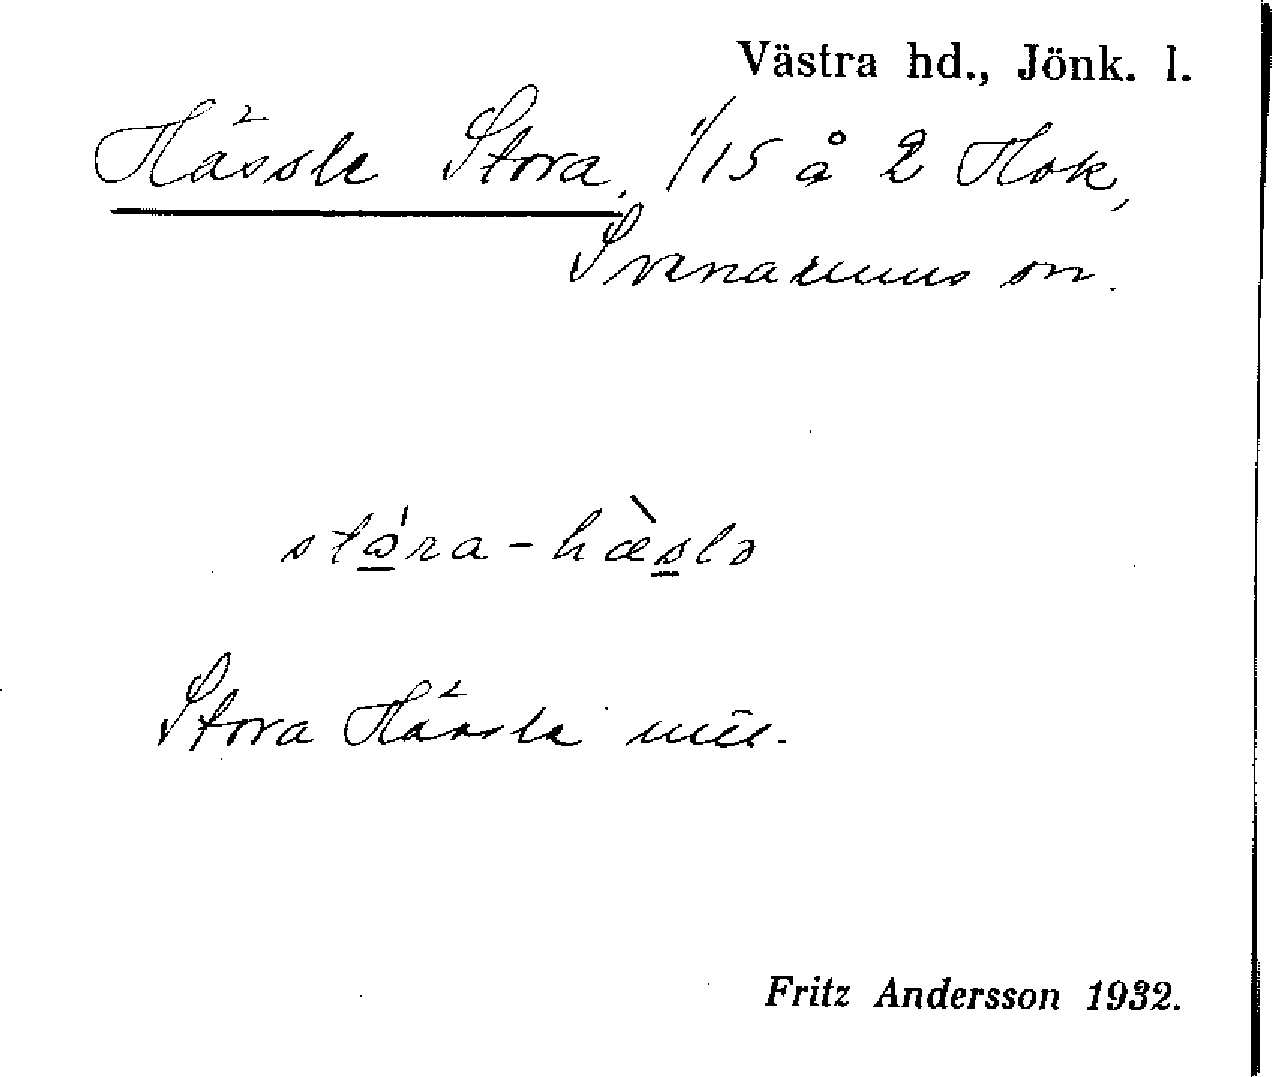 Västra hd., Jönk. l.
Hässle Stora, 1/15 å 2 Hok,
Svenarums sn.
stóra-hæ̀slə
Stora Hässle
Fritz Andersson 1932.